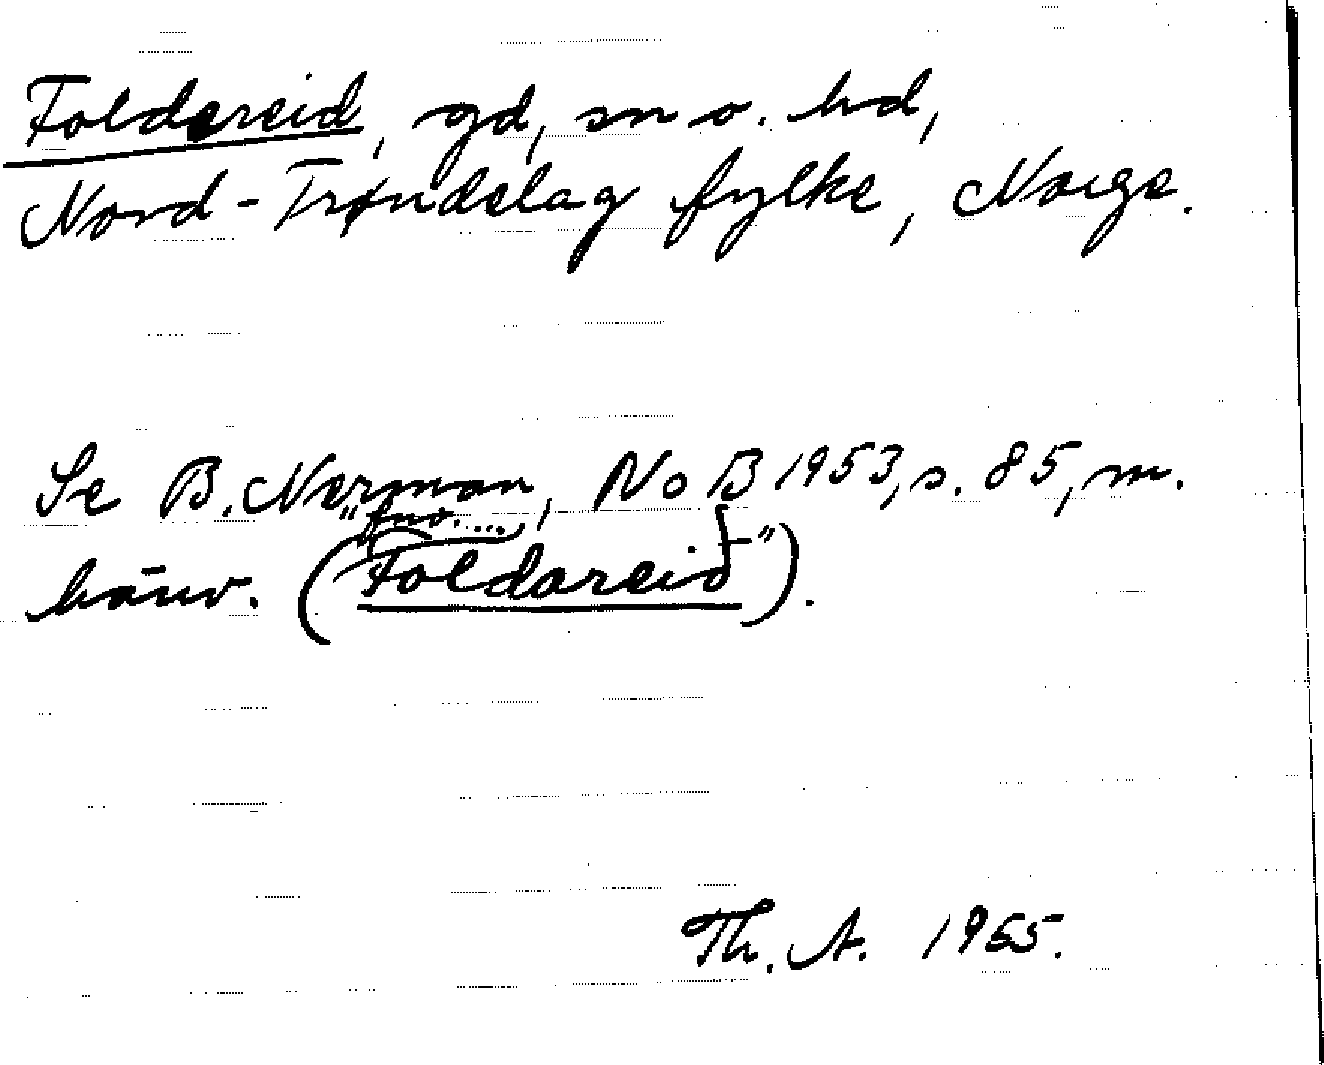 Foldereid, gd, sn o. hd,
Nord-Trøndelag fylke, Norge.
Se B. Nerman, NoB 1953, s. 85, m.
"fno. ....,
hänv. (Foldareið").
Th. A. 1955.